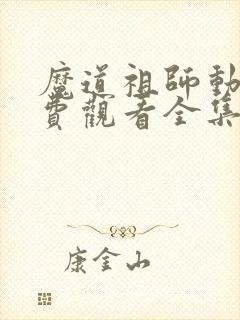 魔道祖師動
費觀看全集
康金山